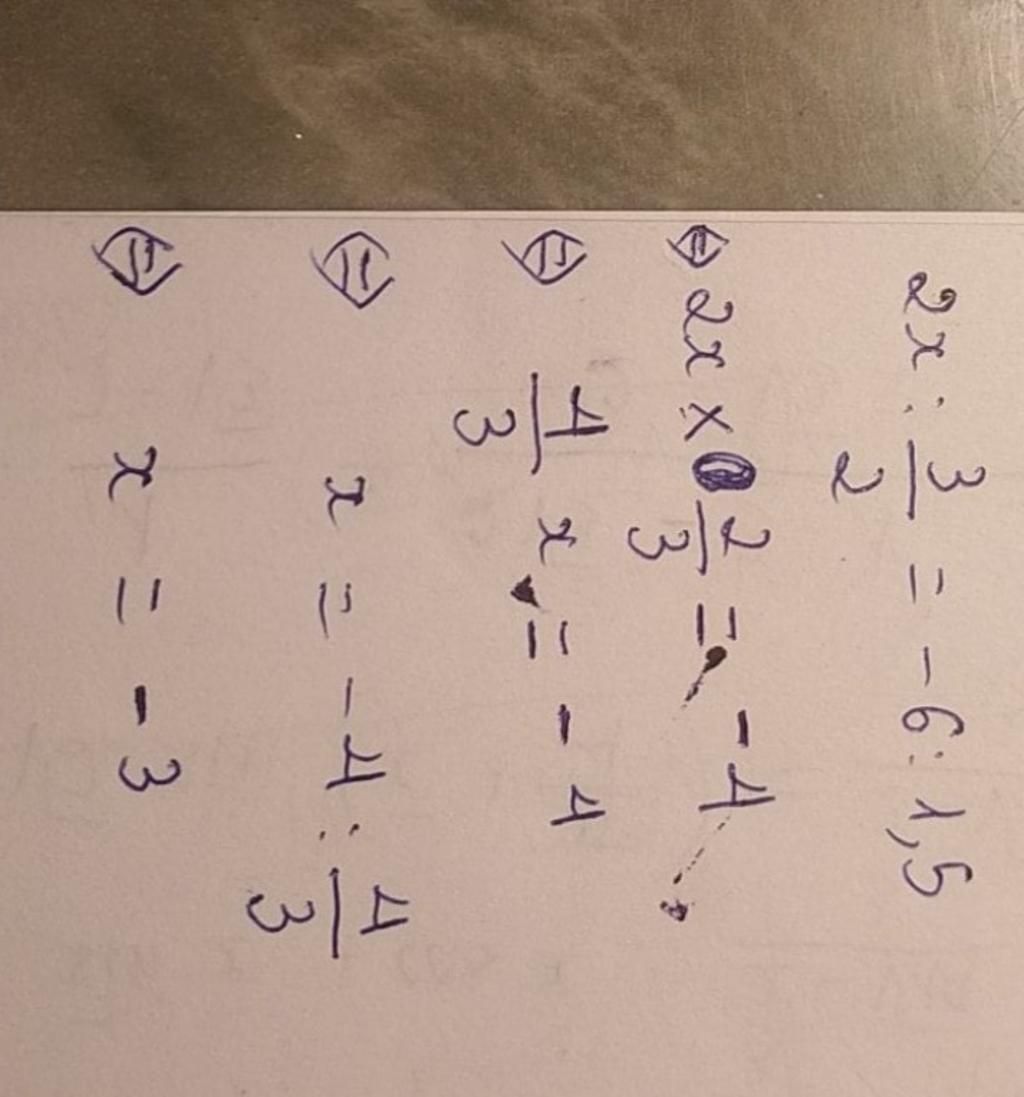 2x : 3/2 = - 6 : 1,5
⇔ 2x × 2/3 = - 4
⇔ 4/3 x = - 4
⇔ x = - 4 : 4/3
⇔ x = - 3